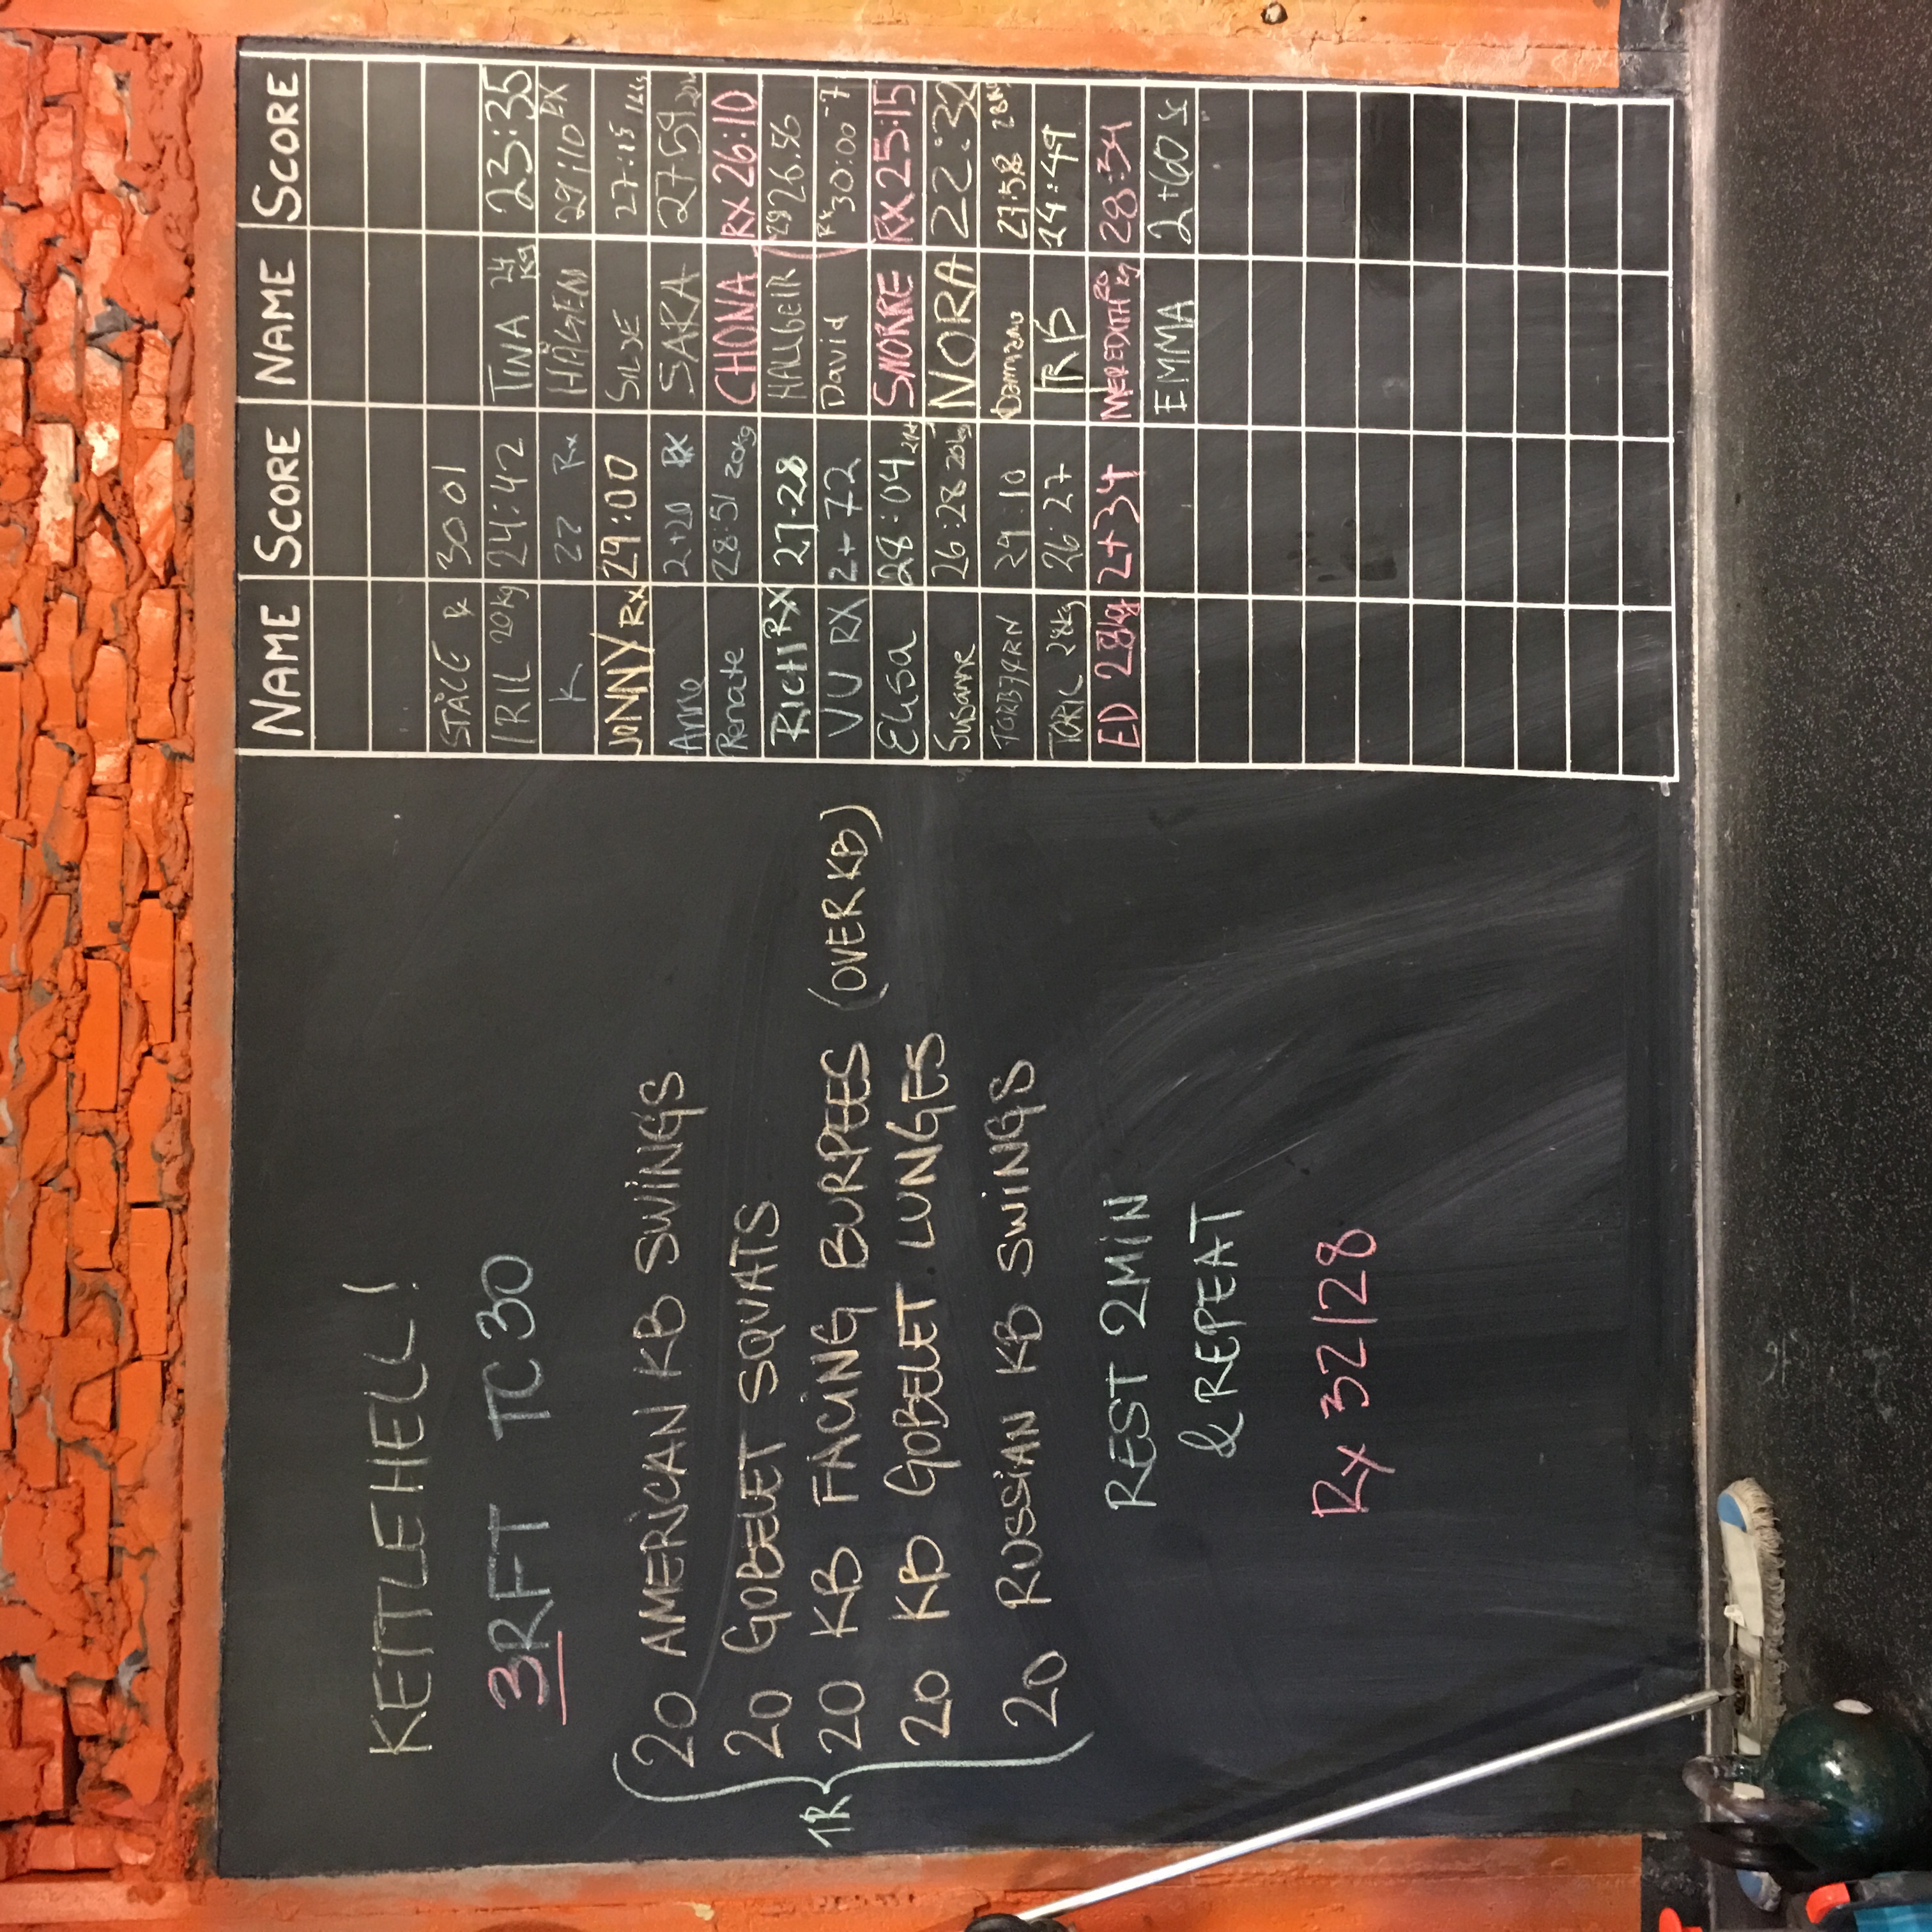 KETTLEHELL!
3RFT TC 30
20 AMERICAN KB SWINGS
20 GOBELET SQUATS
1R 20 KB FACING BURPEES (OVER KB)
20 KB GOBELET LUNGES
20 RUSSIAN KB SWINGS
REST 2MIN
& REPEAT
Rx 32/28
NAME SCORE NAME SCORE
STÅLE Rx 30 01
IRIL 20kg 24:42 TINA 24 kg 23:35
K 22 Rx HÅGEN 29:10 RX
JONNY Rx 29:00 SILJE 27:15
Anne 2+20 RX SARA 27:59
Renate 28:51 20kg CHONA RX 26:10
RICHI RX 27:28 26.56
VU RX 2+72 David Rx 30:00
Elisa 28:04 SNORRE RX 25:15
Susanne 26:28 20kg NORA 22:32
TORBJØRN 29:10 27:58
TORIL 28kg 26:27 24:49
ED 28kg 2+34 MEREDITH 20 kg 28:34
EMMA 2+60